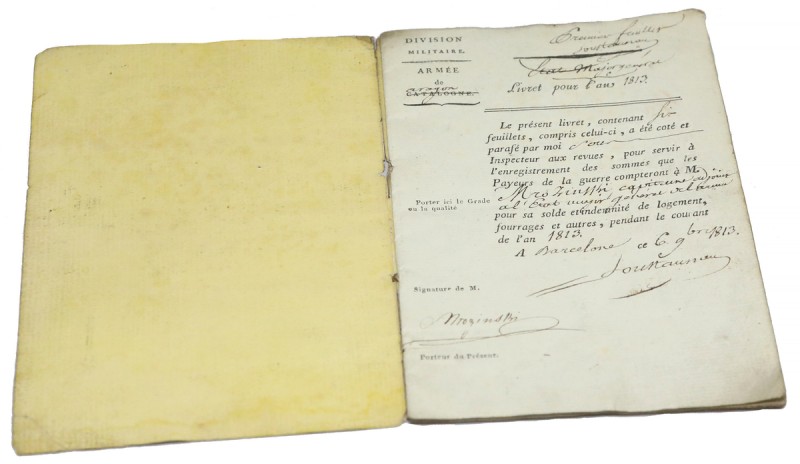 DIVISION
MILITAIRE.
ARMÉE
de
aragon
CATALOGNE.
Premier feuillet
Soustauneau
Etat Major général
Livret pour l'an 1813
Le présent livret, contenant Six
feuillets, compris celui-ci, a été coté et
parafé par moi Sous
Inspecteur aux revues, pour servir à
l'enregistrement des sommes que les
Payeurs de la guerre compteront à M.
Mrozinski capitaine adjoint
Porter ici le Grade
ou la qualité
a l'Etat major général de l'armée
pour sa solde et indemnité de logement,
fourrages et autres, pendant le courant
de l'an 1813.
A Barcelone ce 6 9bre 1813.
Soustauneau
Signature de M.
Mrozinski
Porteur du Présent.